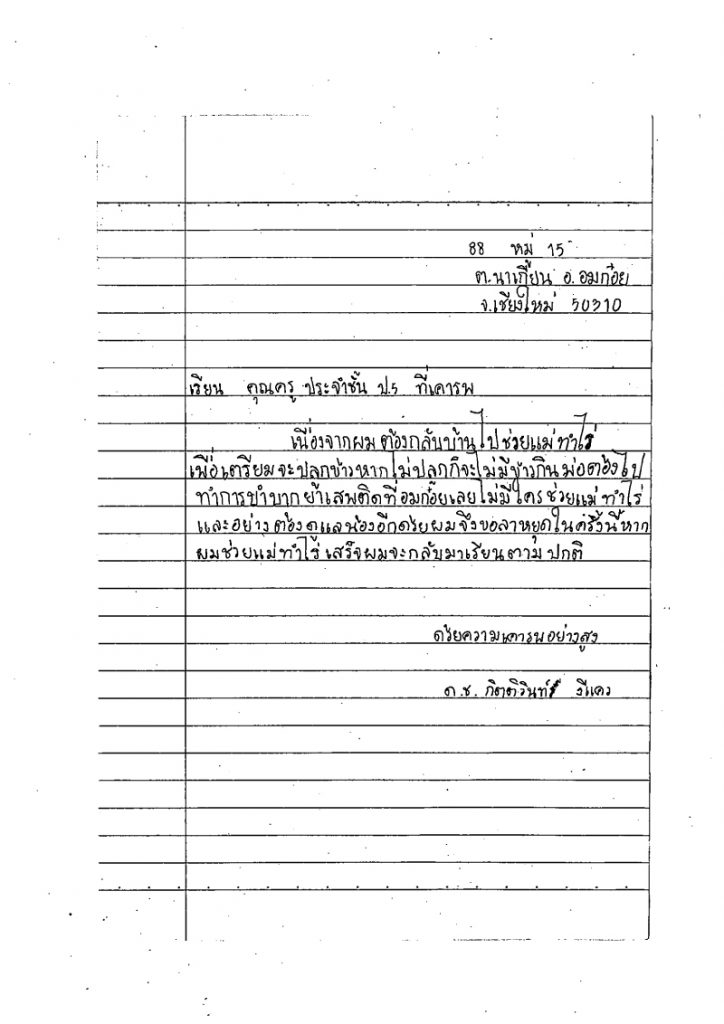 88 หมู่ 15
ต.นาเกียน อ.อมก๋อย
จ.เชียงใหม่ 50310
เรียน คุณครู ประจำชั้น ป.5 ที่เคารพ
เนื่องจากผม ต้องกลับบ้าน ไปช่วยแม่ ทำไร่
เพื่อเตรียมจะปลูกข้าวหากไม่ปลูกก็จะไม่มีข้าวกิน พ่อต้องไป
ทำการบำบาก ยาเสพติดที่ อมก๋อยเลยไม่มีใคร ช่วยแม่ ทำไร่
และอย่าง ต้องดูแลน้องอีกด้วยผมจึงขอลาหยุดในครั้งนี้หาก
ผมช่วยแม่ทำไร่ เสร็จผมจะกลับมาเรียนตาม ปกติ
ด้วยความเคารพอย่างสูง
ด.ช. กิตติรินทร์